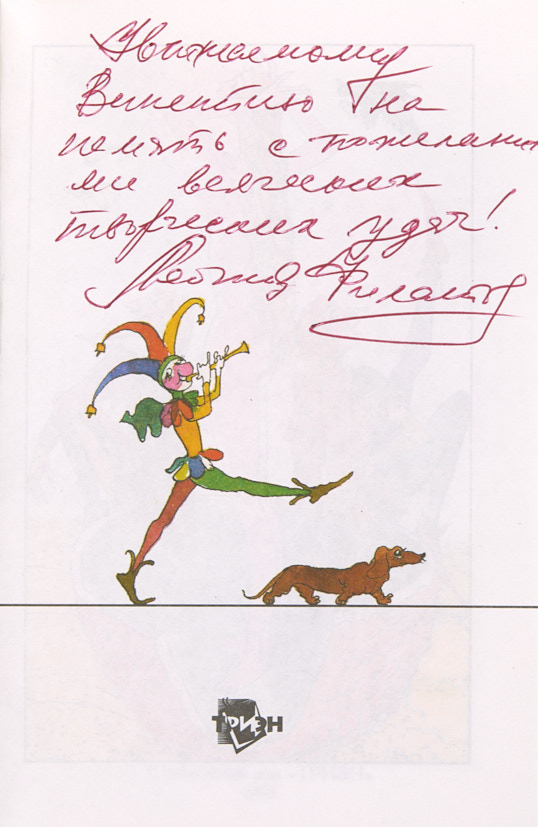 Уважаемому
Викентию Г на
память с пожелания
ми всяческих
творческих удач!
Леонид Филатов
ТРИЭН